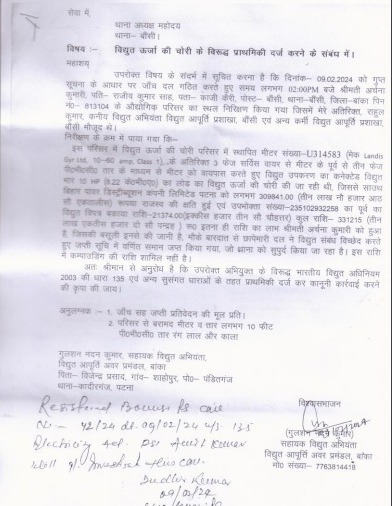 सेवा में,
थाना अध्यक्ष महोदय
थाना– बौंसी।
विषय :– विद्युत ऊर्जा की चोरी के विरूद्ध प्राथमिकी दर्ज करने के संबंध में।
महाशय
उपरोक्त विषय के संदर्भ में सूचित करना है कि दिनांक– 09.02.2024 को गुप्त
सूचना के आधार पर जाँच दल गठित करते हुए समय लगभग 02:00PM बजे श्रीमती अर्चना
कुमारी, पति– राजीव कुमार साह, पता– काजी कैरी, पोस्ट– बौंसी, थाना–बौंसी, जिला–बांका पिन
न०– 813104 के औद्योगिक परिसर का स्थल निरिक्षण किया गया जिसमें मेरे अतिरिक्त, राहुल
कुमार, कनीय विद्युत अभियंता विद्युत आपूर्ति प्रशाखा, बौंसी एवं अन्य कर्मी विद्युत आपूर्ति प्रशाखा,
बौंसी मौजूद थे।
निरीक्षण के क्रम में पाया गया कि–
इस परिसर में विद्युत ऊर्जा की चोरी परिसर में स्थापित मीटर संख्या–U314583 (मेक Landis
Gyr Ltd, 10–60 amp, Class 1), के अतिरिक्त 3 फेज सर्विस वायर से मीटर के पूर्व से तीन फेज
पी०भी०सी० तार के माध्यम से मीटर को बायपास करते हुए विद्युत उपकरण का कनेक्टेड विद्युत
भार 10 HP (9.22 के०भी०ए०) का लोड का विद्युत ऊर्जा की चोरी की जा रही थी, जिससे साउथ
बिहार पावर डिस्ट्रीब्यूशन कंपनी लिमिटेड पटना को लगभग 309841.00 (तीन लाख नौ हजार आठ
सौ एकतालीस) रूपया राजस्व की क्षति हुई एवं उपभोक्ता संख्या–235102932258 का पूर्व का
विद्युत विपत्र बकाया राशि–21374.00(इक्कीस हजार तीन सौ चौहत्तर) कुल राशि– 331215 (तीन
लाख एकतीस हजार दो सौ पन्द्रह ) रू० इतना ही राशि का लाभ श्रीमती अर्चना कुमारी को हुआ
है, जिसकी बसूली इनसे की जानी है, मौके बारदात से छापेमारी दल ने विद्युत संबंध विच्छेद करते
हुए जप्ती सूचि में वर्णित समान जप्त किया गया, जो थाना को सुपुर्द किया जा रहा है। इस राशि
में कम्पाउडिंग की राशि शामिल नहीं है।
अतः श्रीमान से अनुरोध है कि उपरोक्त अभियुक्त के विरूद्ध भारतीय विद्युत अधिनियम
2003 की धारा 135 एवं अन्य सुसंगत धाराओं के तहत प्राथमिकी दर्ज कर कानूनी कार्रवाई करने
की कृपा की जाय।
अनुलग्नक :– 1. जाँच सह जप्ती प्रतिवेदन की मूल प्रति।
2. परिसर से बरामद मीटर व तार लगभग 10 फीट
पी०भी०सी० तार रंग लाल और काला
गुलशन नंदन कुमार, सहायक विद्युत अभियंता,
विद्युत आपूर्ति अवर प्रमंडल, बांका
पिता– विजेन्द्र प्रसाद, गांव– शाहोपुर, पो०– पंडितगंज
थाना–कादीरगंज, पटना
विश्वासभाजन
(गुलशन नंदन कुमार)
सहायक विद्युत अभियंता
विद्युत आपूर्ति अवर प्रमंडल, बांका
मो० संख्या– 7763814418
Registered Bounsi PS case
No – 42/24 dt. 09/02/24 u/s 135
Electricity Act. PSI Amit Kumar
will Investigate this case
Sudhir Kumar
09/02/24